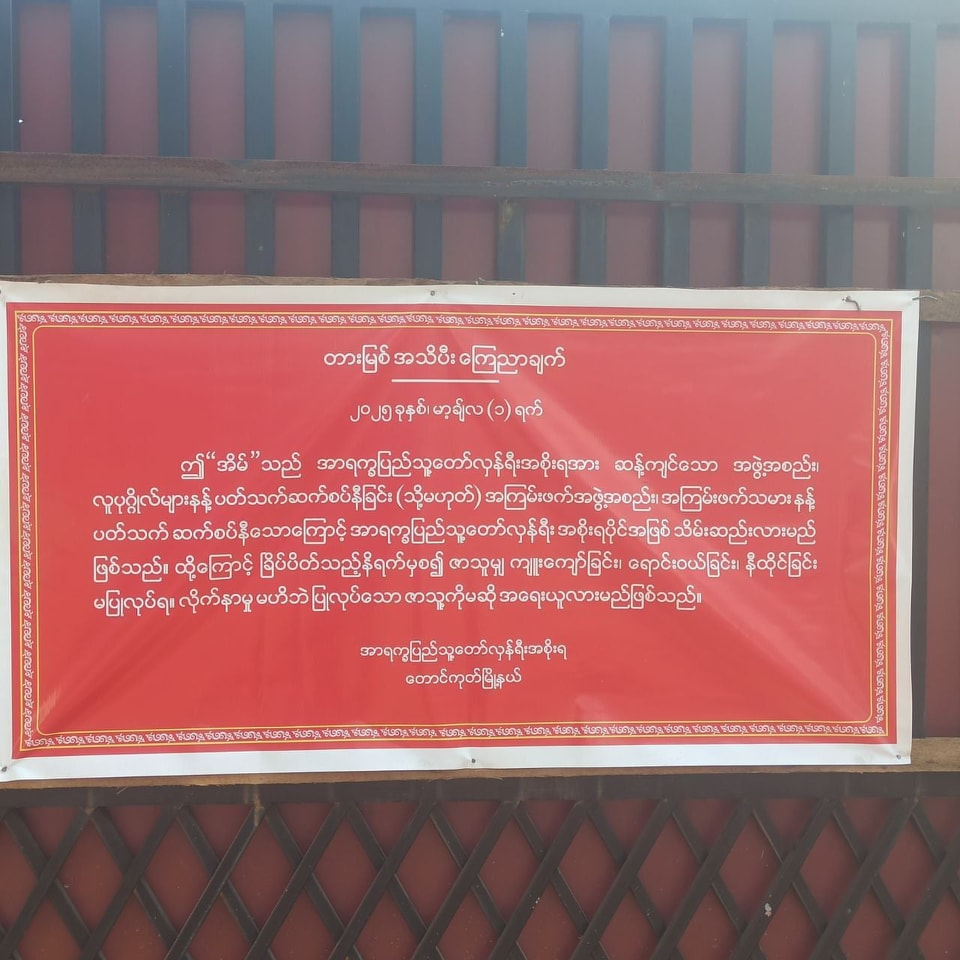 တားမြစ် အသိပီး ကြေညာချက်
၂၀၂၅ ခုနှစ်၊ မာ့ချ်လ (၁) ရက်
ဤ“အိမ်”သည် အာရက္ခပြည်သူ့တော်လှန်ရီးအစိုးရအား ဆန့်ကျင်သော အဖွဲ့အစည်း၊
လူပုဂ္ဂိုလ်များနန့် ပတ်သက်ဆက်စပ်နီခြင်း (သို့မဟုတ်) အကြမ်းဖက်အဖွဲ့အစည်း၊ အကြမ်းဖက်သမား နန့်
ပတ်သက် ဆက်စပ်နီသောကြောင့် အာရက္ခပြည်သူ့တော်လှန်ရီး အစိုးရပိုင်အဖြစ် သိမ်းဆည်းလားမည်
ဖြစ်သည်။ ထို့ကြောင့် ခြိပ်ပိတ်သည့်နိရက်မှစ၍ ဇာသူမျှ ကျူးကျော်ခြင်း၊ ရောင်းဝယ်ခြင်း၊ နီထိုင်ခြင်း
မပြုလုပ်ရ။ လိုက်နာမှု မဟိဘဲ ပြုလုပ်သော ဇာသူ့ကိုမဆို အရေးယူလားမည်ဖြစ်သည်။
အာရက္ခပြည်သူ့တော်လှန်ရီးအစိုးရ
တောင်ကုတ်မြို့နယ်